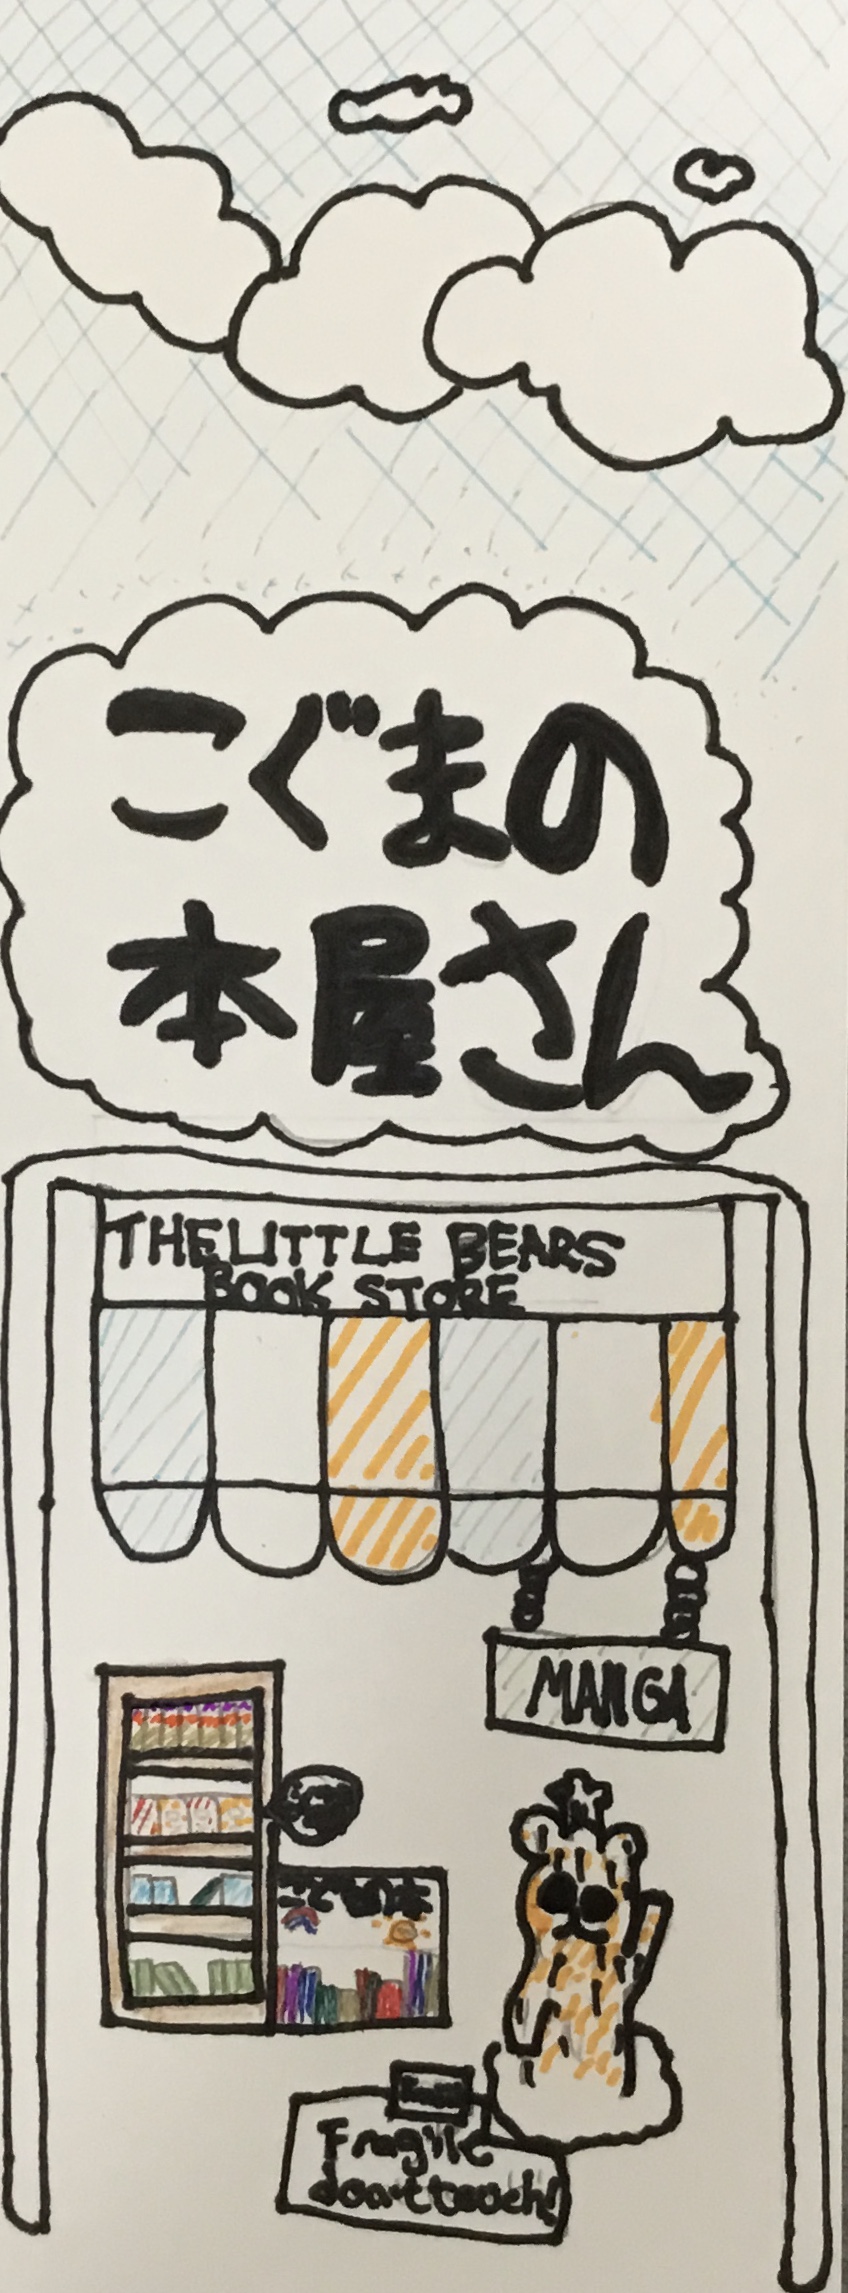 こぐまの
本屋さん
THE LITTLE BEARS
BOOK STORE
MANGA
こどもの本
Fragile
don't touch!